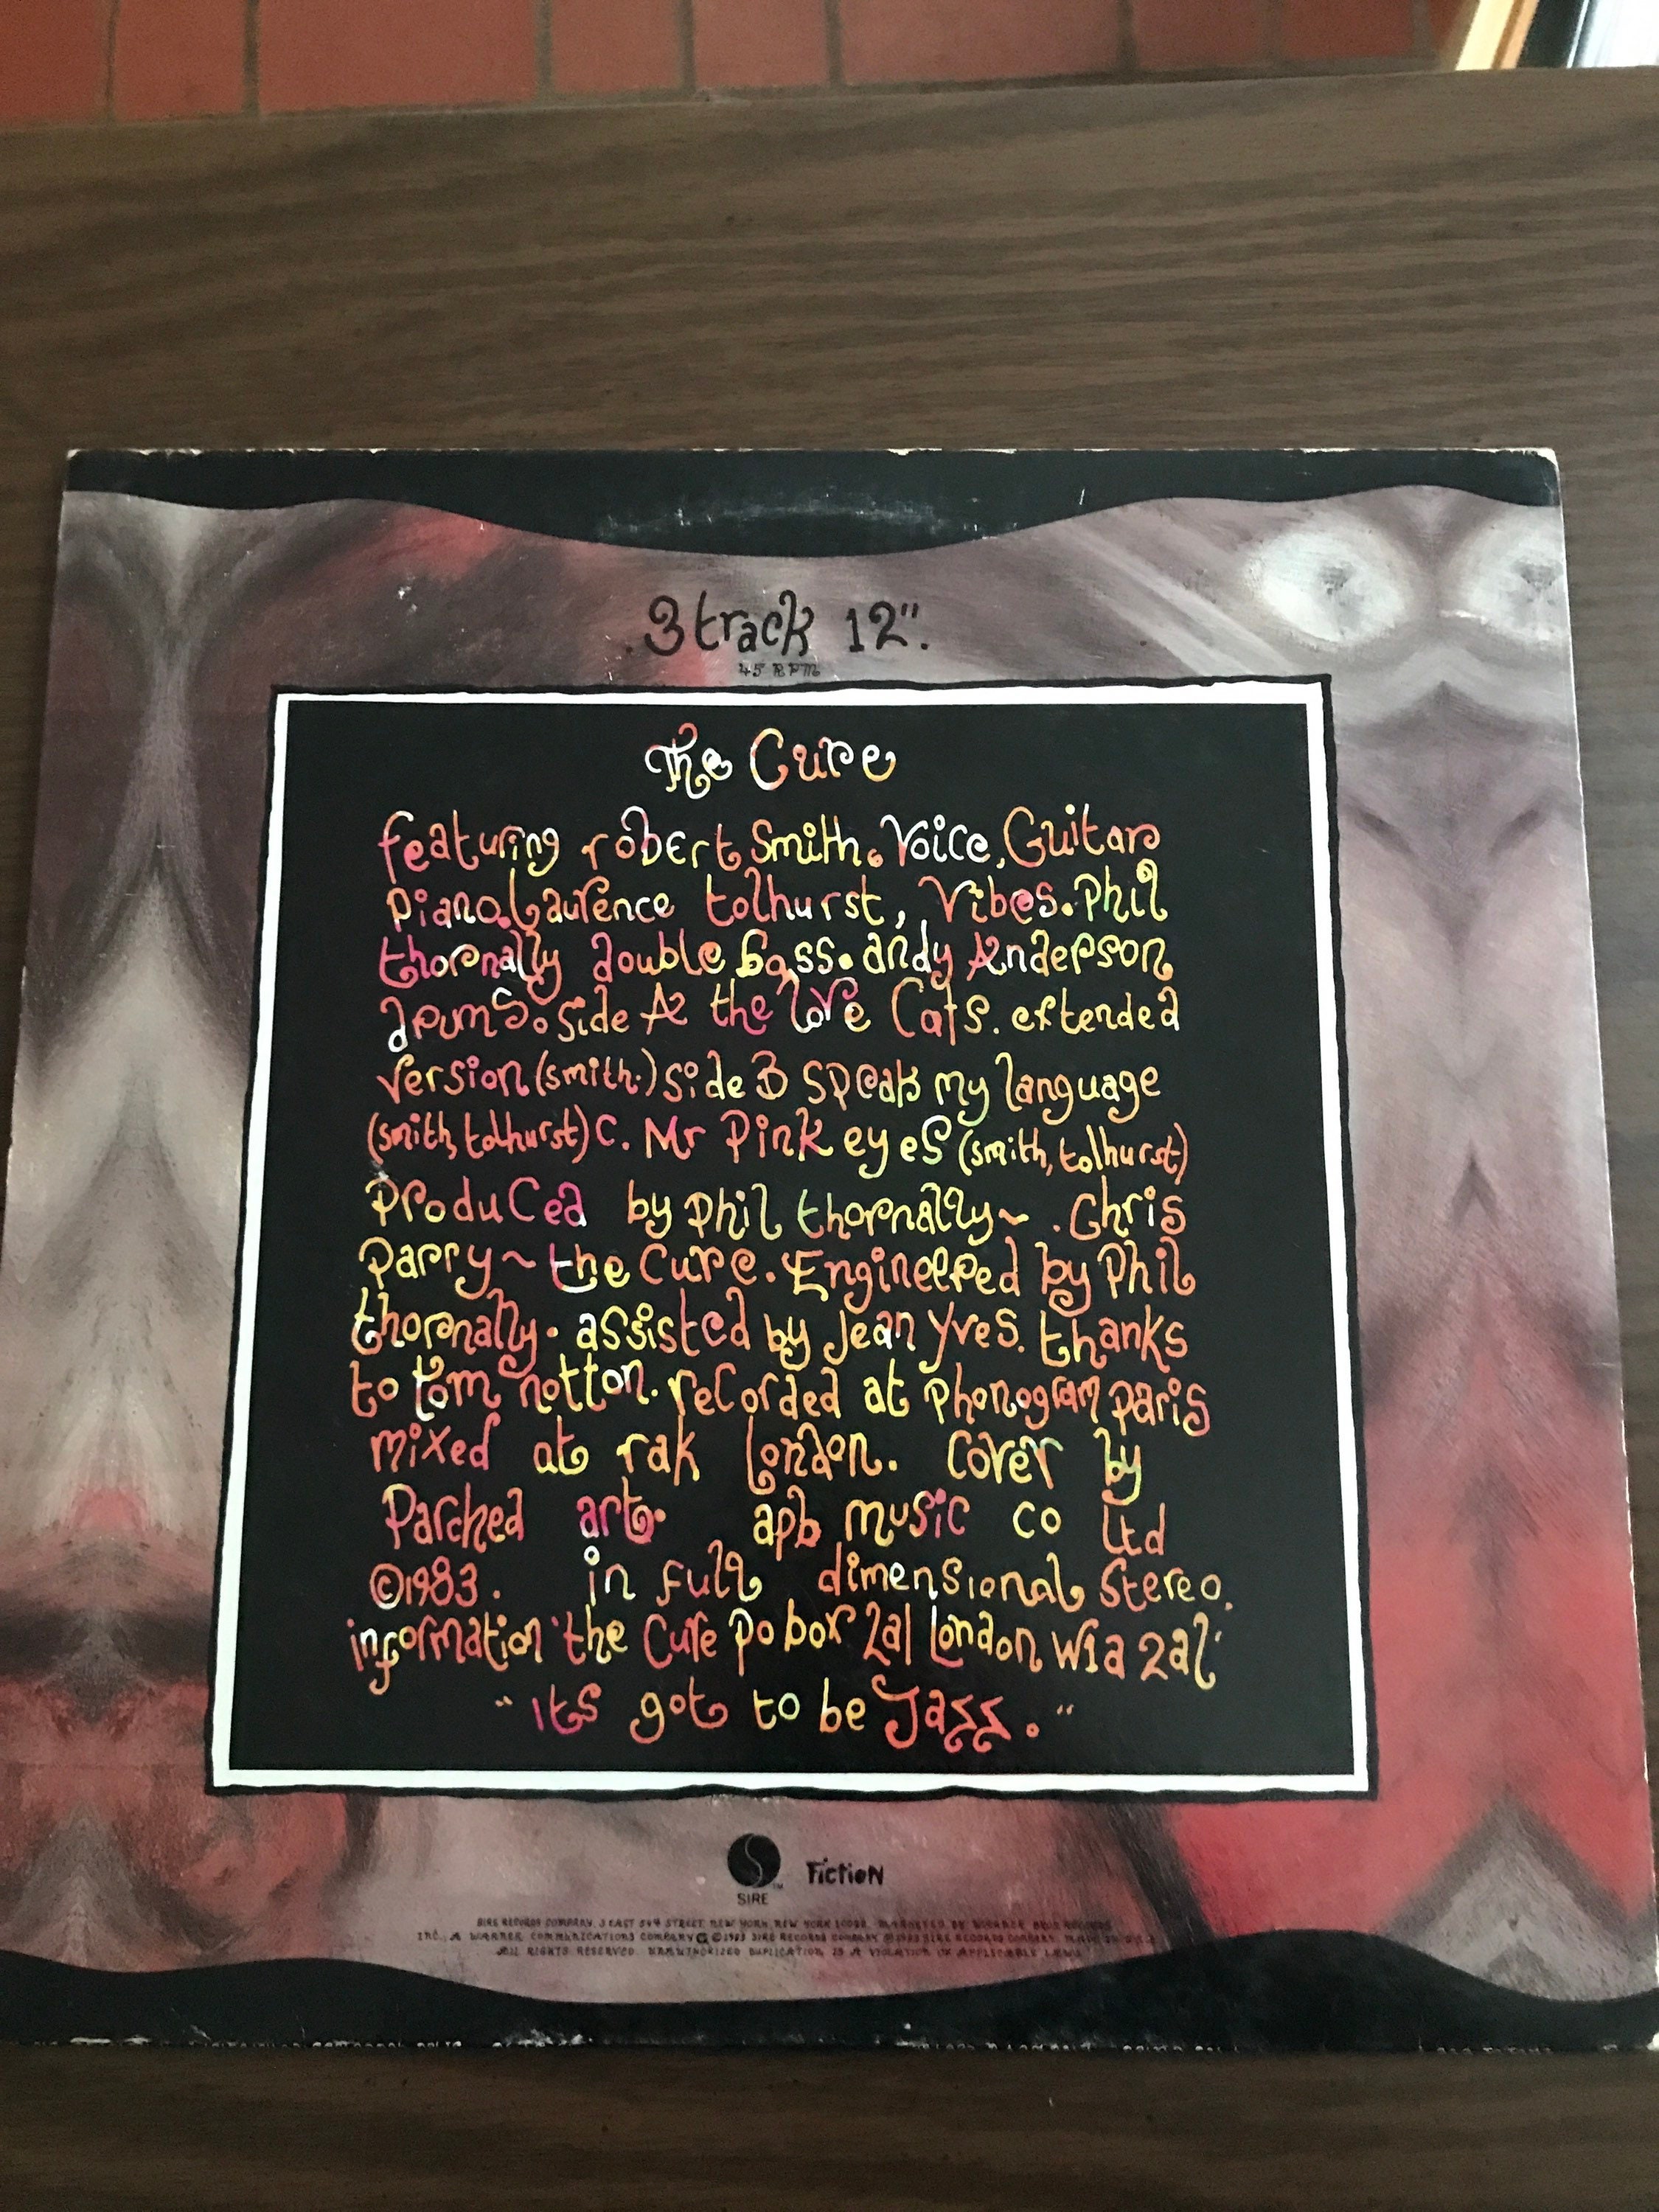 . 3 track 12".
45 RPM
The Cure
featuring robert Smith. Voice, Guitar
piano. Laurence tolhurst, Vibes. Phil
thornally double bass. andy Anderson
drums. side A the love Cats. extended
version (smith.) side B speak my language
(smith, tolhurst) C. Mr Pink eyes (smith, tolhurst)
Produced by Phil thornally ~ . Chris
Parry ~ the Cure. Engineered by Phil
thornally. assisted by Jean Yves. thanks
to tom notton. recorded at Phonogram paris
mixed at rak london. Cover by
Parched art. apb music co Ltd
©1983. in full dimensional Stereo.
information 'the Cure po box 2al London W1a 2al'
"its got to be Jazz."
SIRE™ Fiction
SIRE RECORDS COMPANY, 3 EAST 54TH STREET, NEW YORK, NEW YORK 10022. MARKETED BY WARNER BROS RECORDS
INC., A WARNER COMMUNICATIONS COMPANY ©1983 SIRE RECORDS COMPANY 1983 SIRE RECORDS COMPANY. MADE IN U.S.A.
ALL RIGHTS RESERVED. UNAUTHORIZED DUPLICATION IS A VIOLATION OF APPLICABLE LAWS.